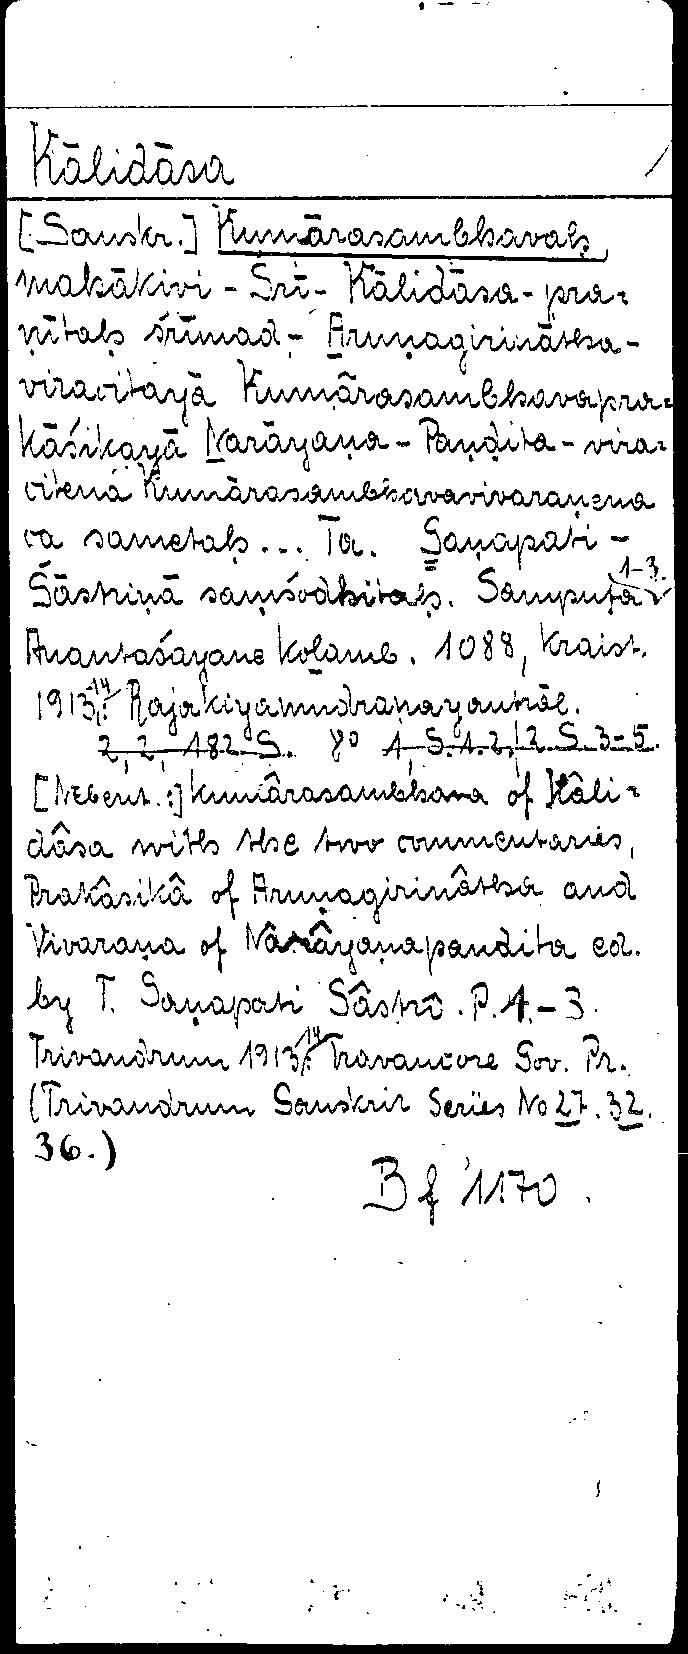 Kālidāsa /
[Sanskr.] Kumārasambhavaḥ
mahākivi-Śrī-Kālidāsa-pra=
ṇītaḥ śrīmad-Aruṇagirinātha-
viracitayā Kumārasambhavapra=
kāśikayā Narāyaṇa-Paṇḍita-vira=
citena Kumārasambhavavivaraṇena
ca sametaḥ... Ta. Gaṇapati-
Śāstriṇā saṃśodhitaḥ. Sampuṭa 1-3.
Anantaśayane kolamb. 1088, Kraist.
1913-14: Rajakīyamudraṇayantrāl.
2, 2, 182 S. 8° 1, S. 1. 2, 2 S. 3-5.
[Nebent.:] Kumârasambhava of Kâli=
dâsa with the two commentaries,
Prakâsikâ of Aruṇagirinâtha and
Vivaraṇa of Nârâyaṇapandita ed.
by T. Gaṇapati Sâstrî. P. 1.-3.
Trivandrum 1913-14: Travancore Gov. Pr.
(Trivandrum Sanskrit Series No 27. 32.
36.)
Bf 1170.